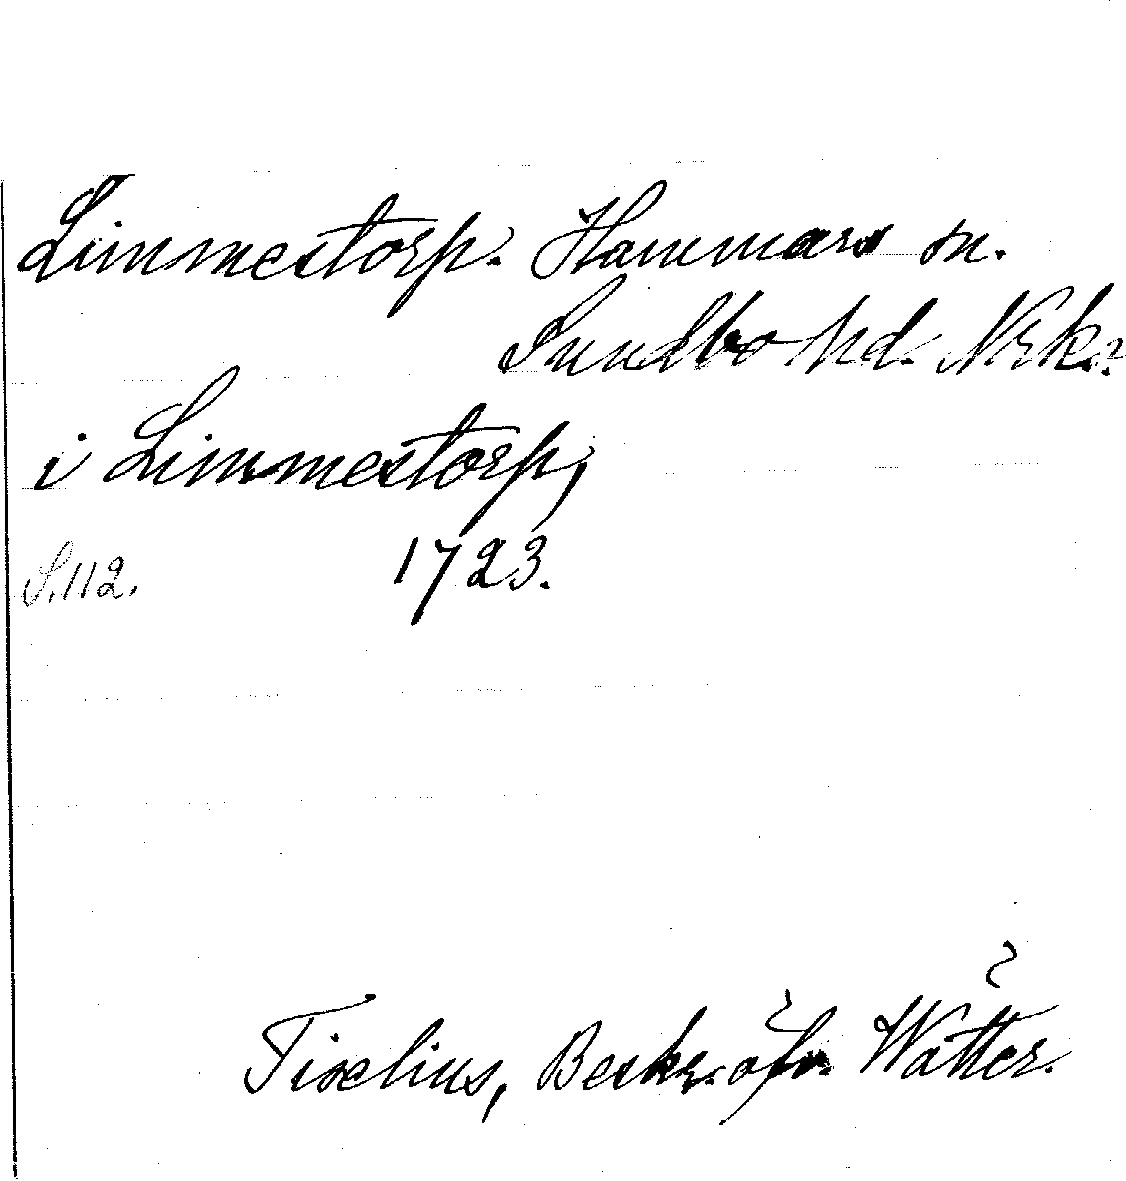 Limmestorp. Hammars sn.
Sundbo hd. Nrk.
i Limmestorp,
S. 112. 1723.
Tiselius, Beskr. öfv. Wätter.